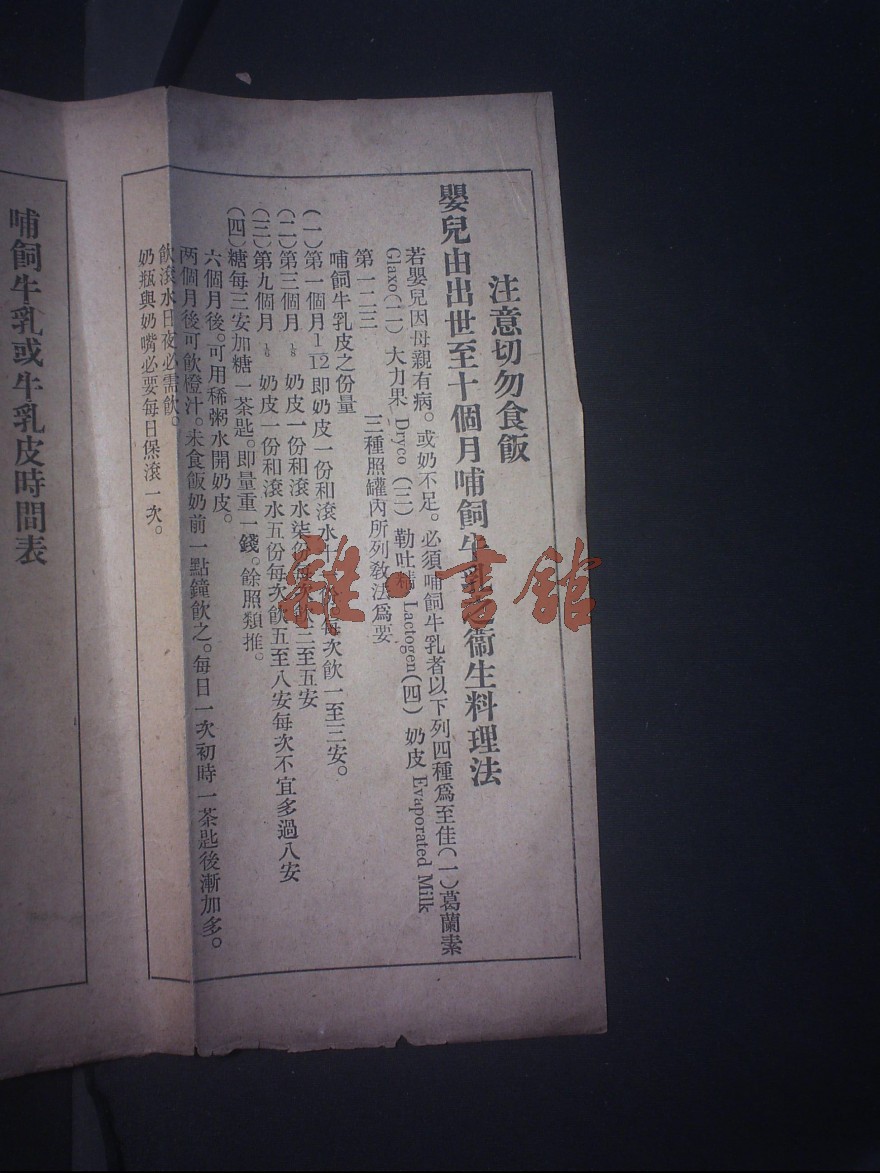 注意切勿食飯
嬰兒由出世至十個月哺飼牛乳之衞生料理法
若嬰兒因母親有病。或奶不足。必須哺飼牛乳者以下列四種爲至佳(一)葛蘭素
Glaxo(二) 大力果 Dryco (三) 勒吐精 Lactogen(四) 奶皮 Evaporated Milk
第一二三 三種照罐內所列教法爲要
哺飼牛乳皮之份量
(一)第一個月 1/12 卽奶皮一份和滾水十一份。每次飲一至三安。
(二)第三個月 1/8 奶皮一份和滾水柒份每次飲三至五安
(三)第九個月 1/6 奶皮一份和滾水五份每次飲五至八安每次不宜多過八安
(四)糖每三安加糖一茶匙。卽量重一錢。餘照類推。
六個月後。可用稀粥水開奶皮。
两個月後可飲橙汁。未食飯奶前一點鐘飲之。每日一次初時一茶匙後漸加多。
飲滾水日夜必需飲。
奶瓶與奶嘴必要每日煲滾一次。
哺飼牛乳或牛乳皮時間表
雜·書館